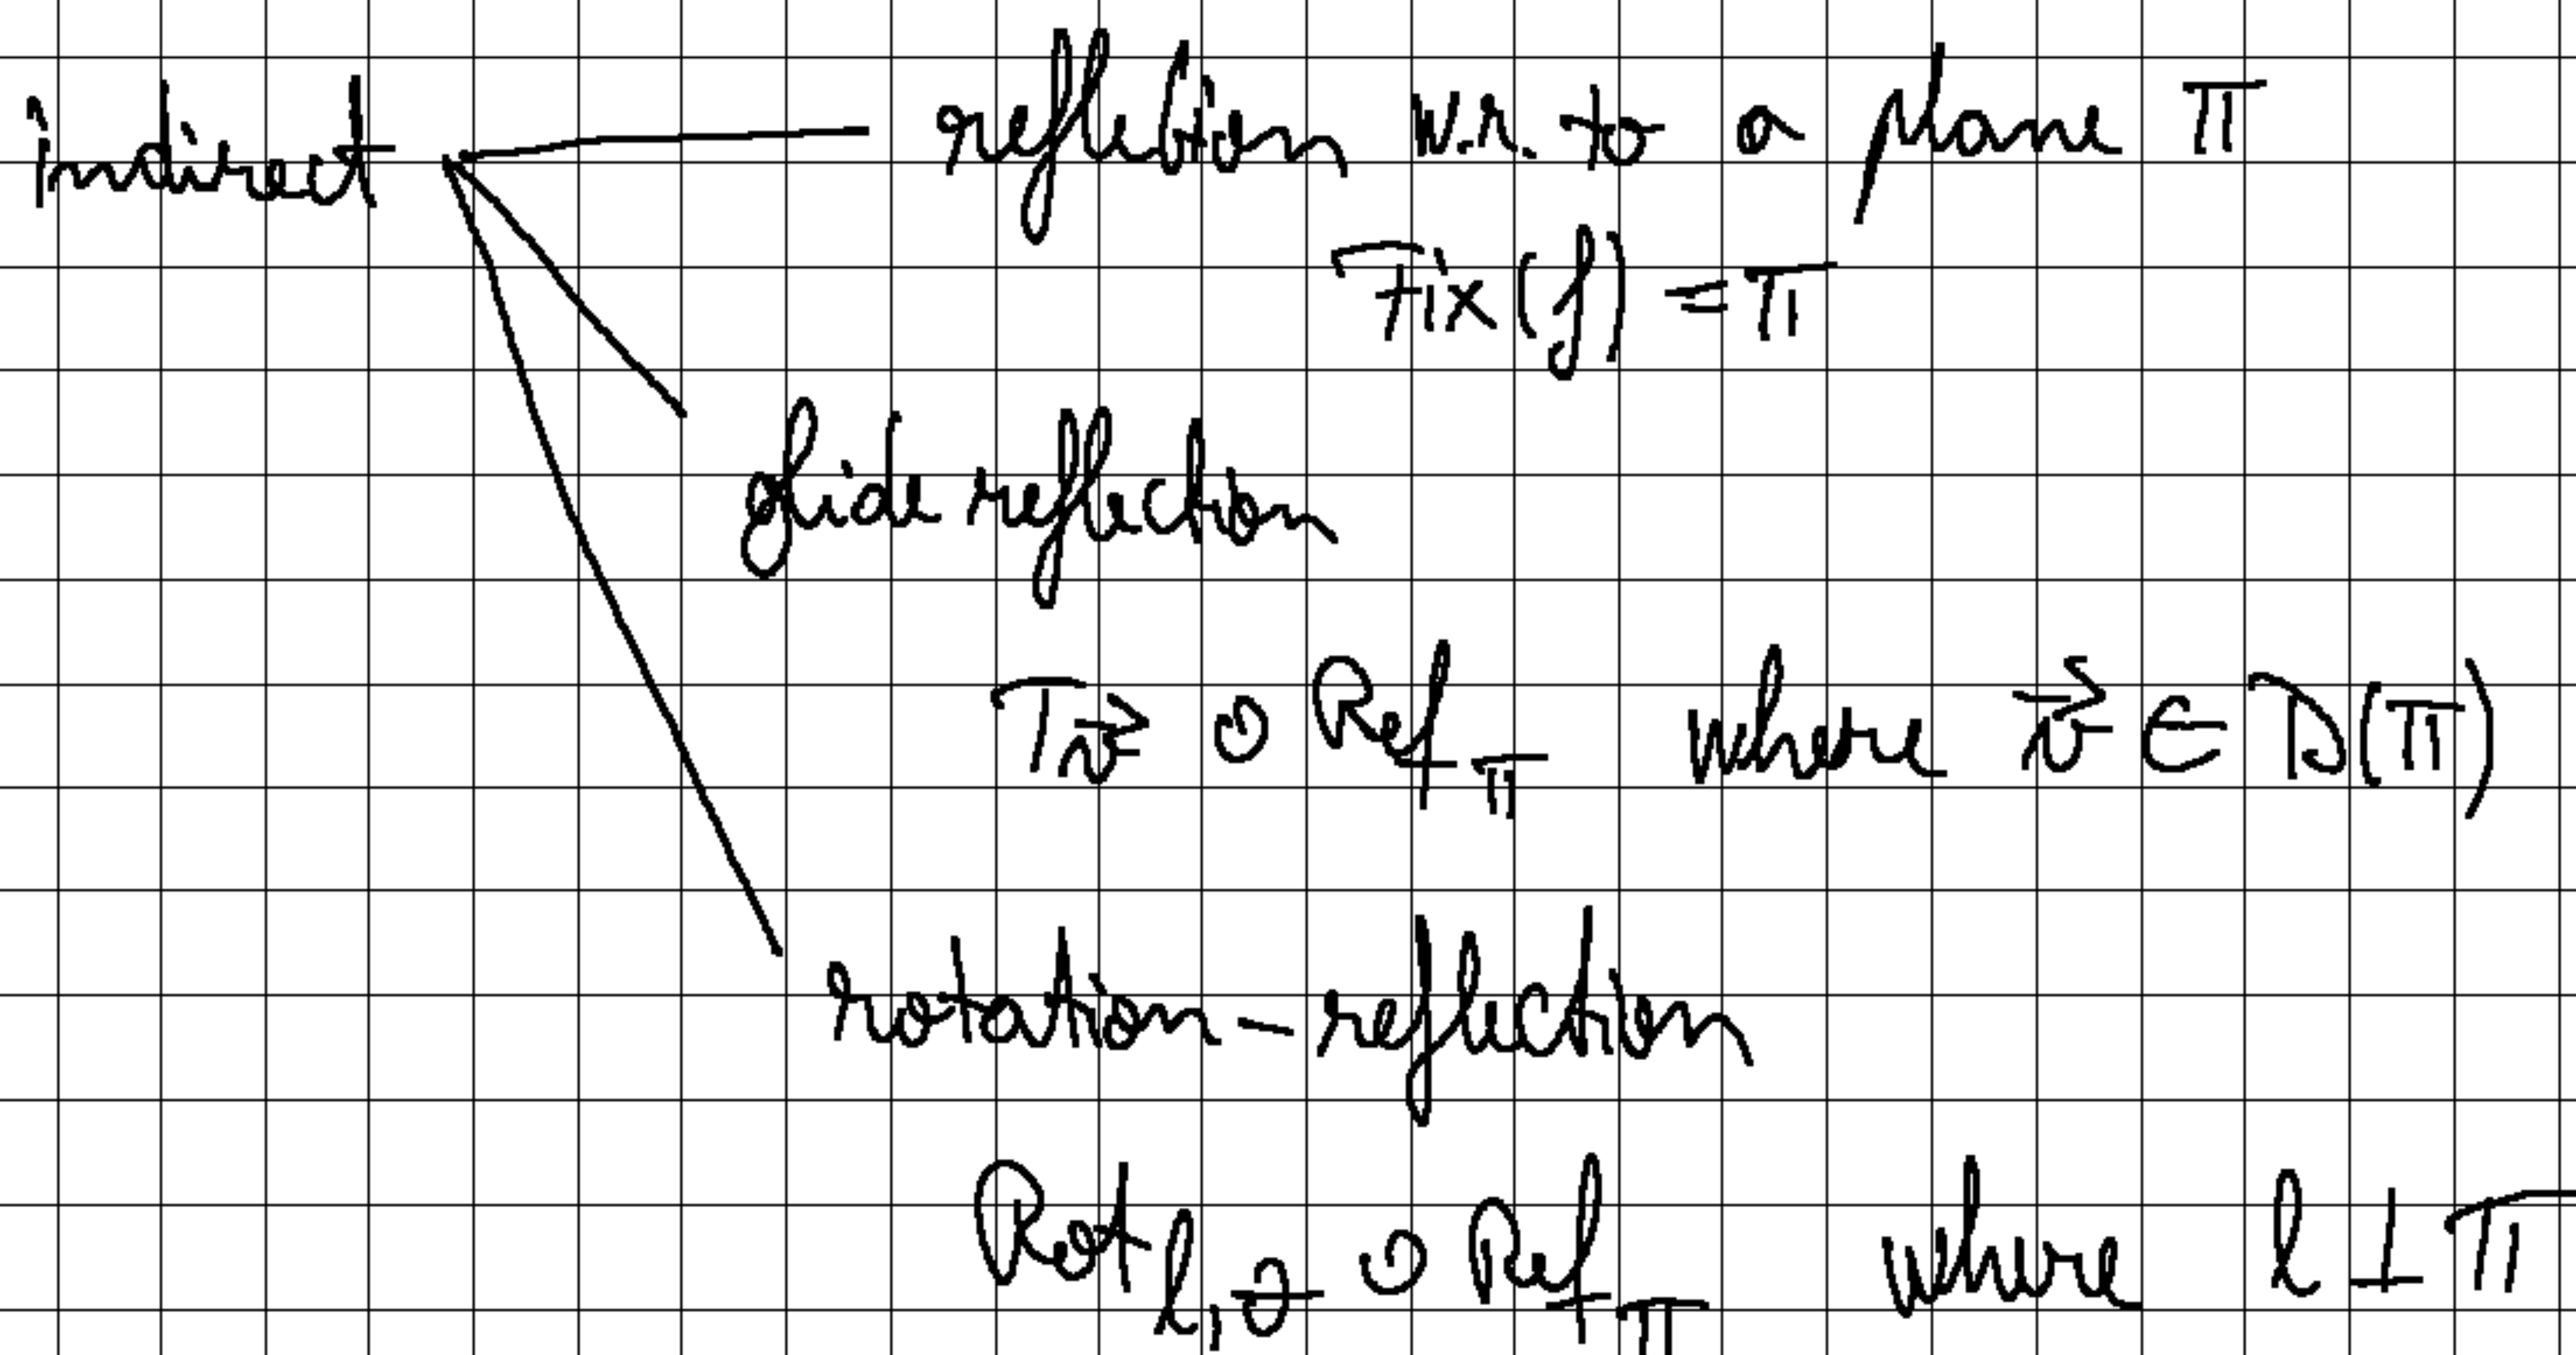 indirect reflection w.r. to a plane π
Fix(f) = π
glide reflection
T_v⃗ ∘ Ref_π where v⃗ ∈ D(π)
rotation - reflection
Rot_ℓ,θ ∘ Ref_π where ℓ ⊥ π